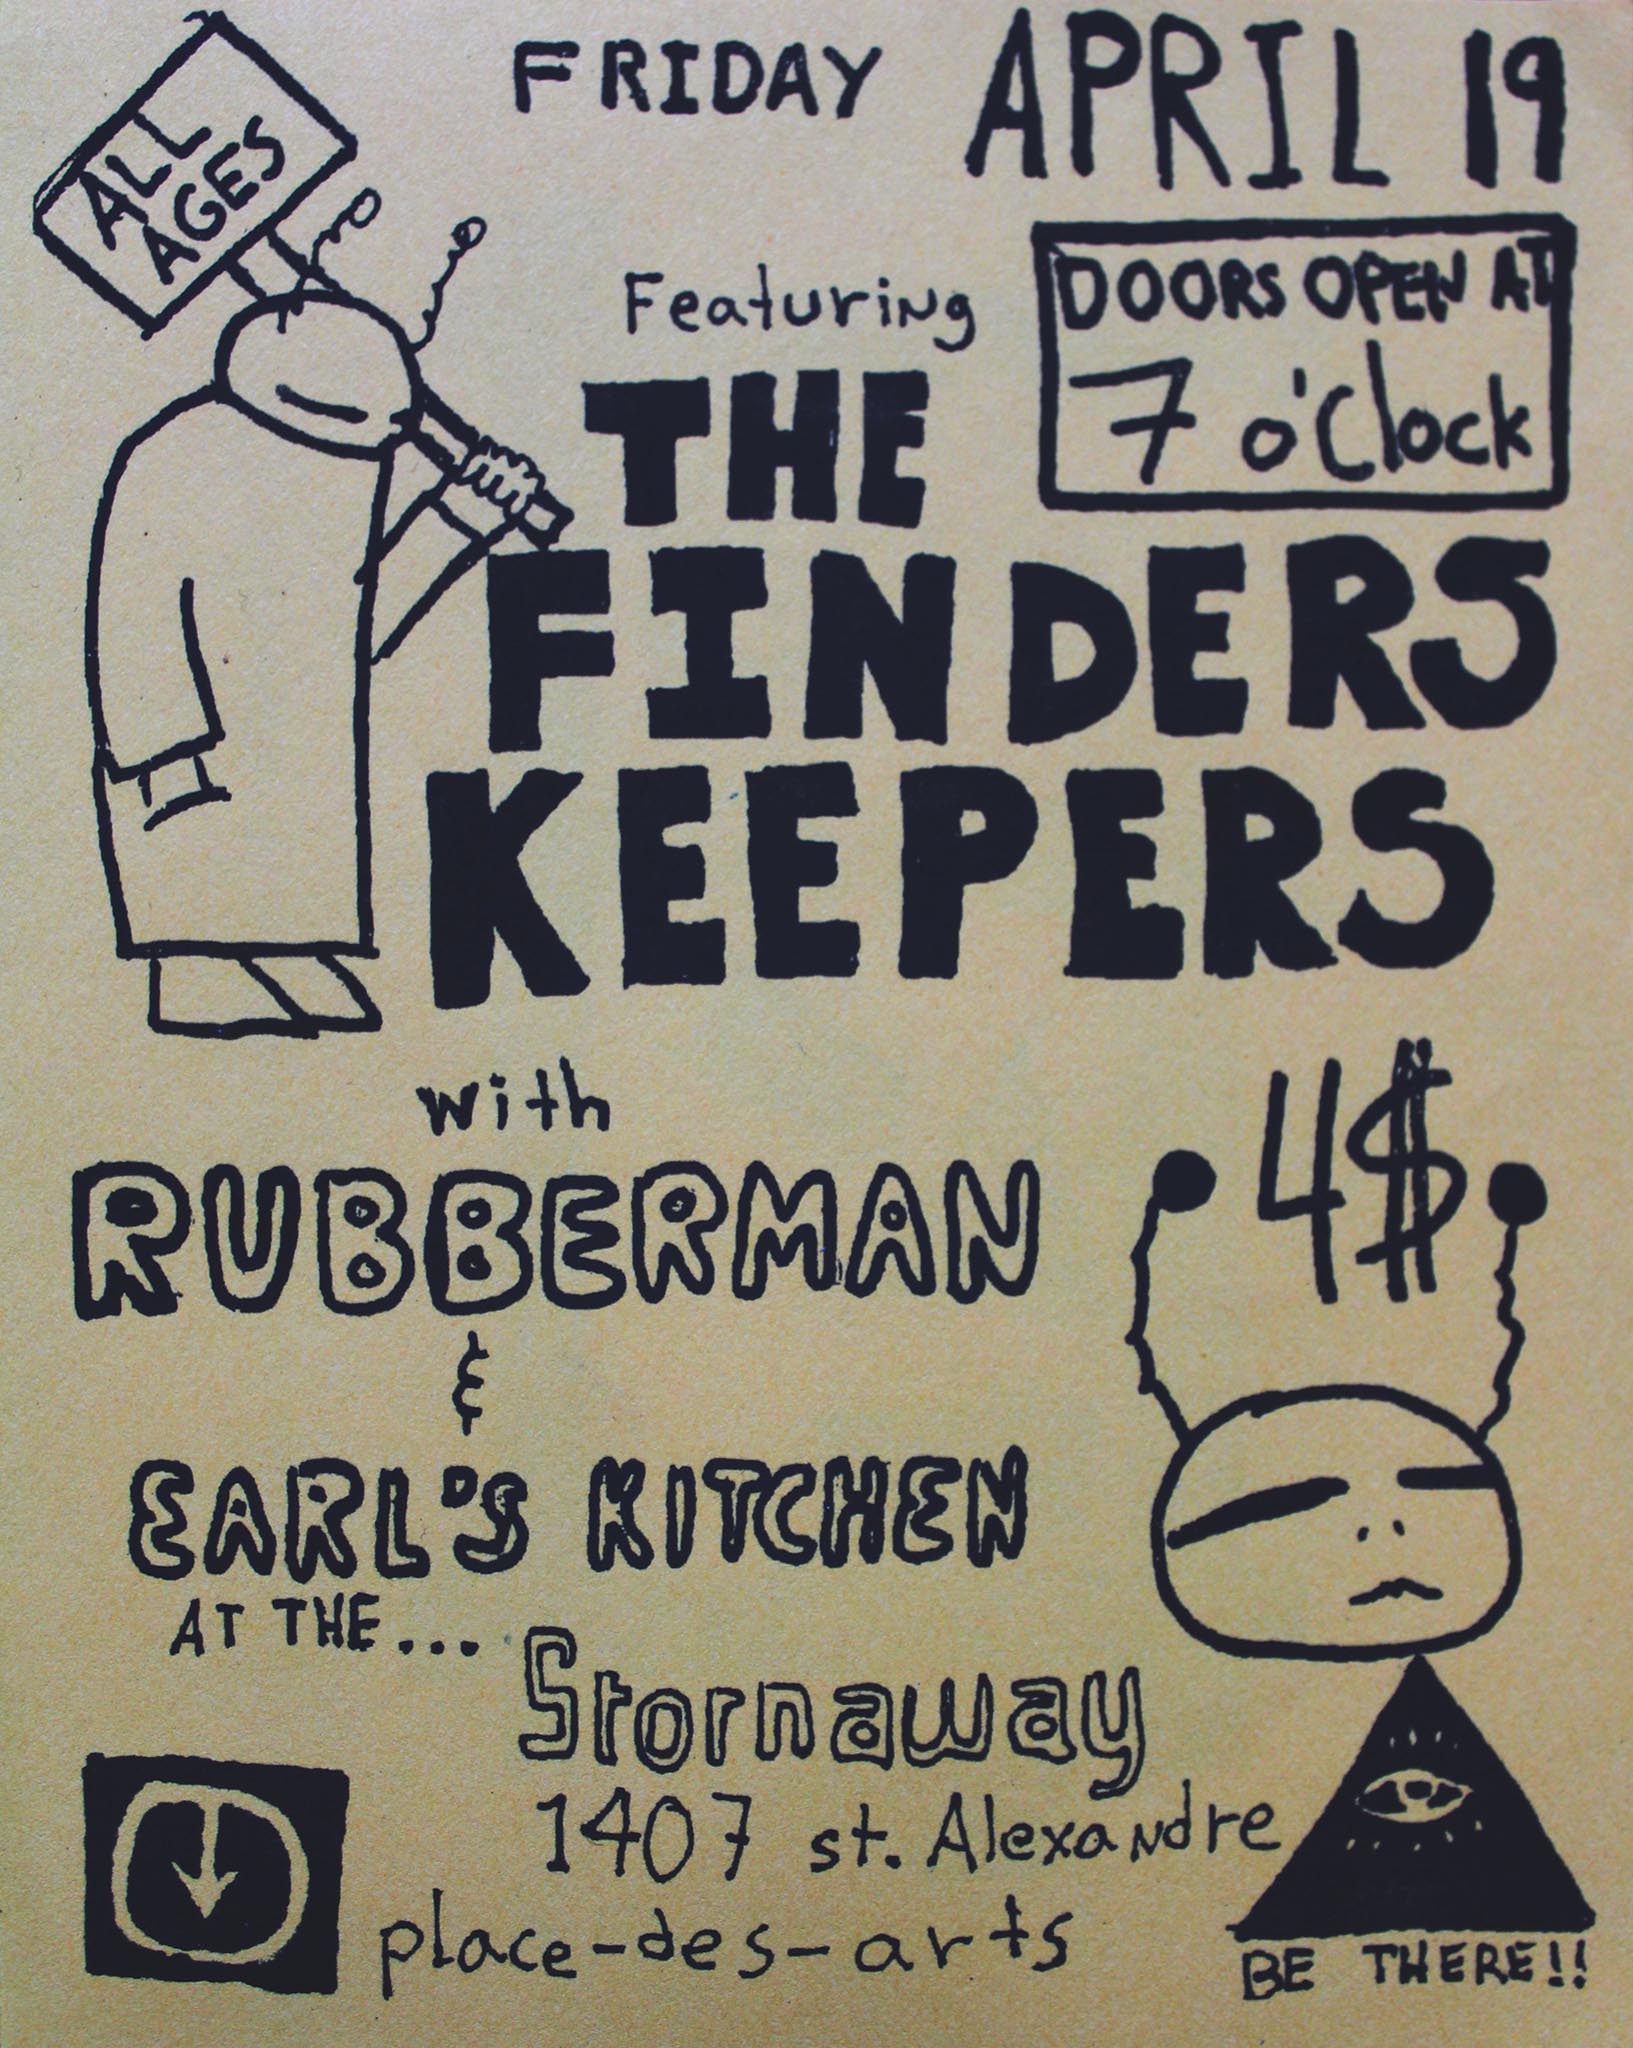 FRIDAY APRIL 19
ALL
AGES
DOORS OPEN AT
7 o'clock
Featuring
THE
FINDERS
KEEPERS
with
4$
RUBBERMAN
&
EARL'S KITCHEN
AT THE...
Stornaway
1407 st. Alexandre
place-des-arts
BE THERE!!